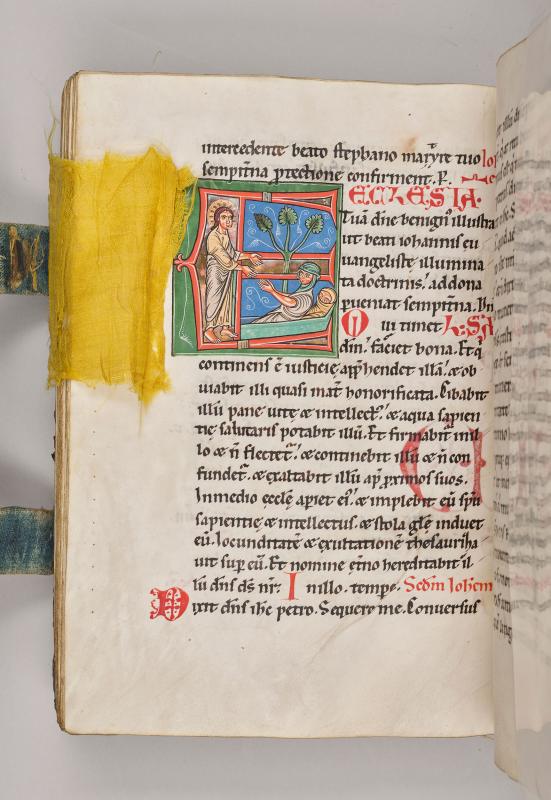 intercedente beato stephano martyre tuo Ioh
sempitna ptectione confirment. P.
ECCLESIA.
Tuã dñe benign illustra
ut beati iohannis eu
uangeliste illumina
ta doctrinis, addona
pueniat sempitna. 
Qui timet
dm, faciet bona. Et q
continens ẽ iusticiẹ appħendet illã, & ob
uiabit illi quasi mat honorificata. Cibabit
illũ pane uitẹ & intellect, & aqua sapien
tiẹ salutaris potabit illũ. Et firmabit in il
lo & ñ flectet, & continebit illũ & ñ con
fundet, & exaltabit illũ ap pximos suos.
In medio ecclẹ apiet ei, & implebit eũ spũ
sapientiẹ & intellectus, & stola glẹ induet
eũ. Iocunditatẽ & exultationẽ thesauriza
uit sup eũ. Et nomine et̃no hereditabit il
lũ dñs ds nr. In illo tempr. Scdm Iohem
Dixit dñs ihc petro. Sequere me. Conuersus